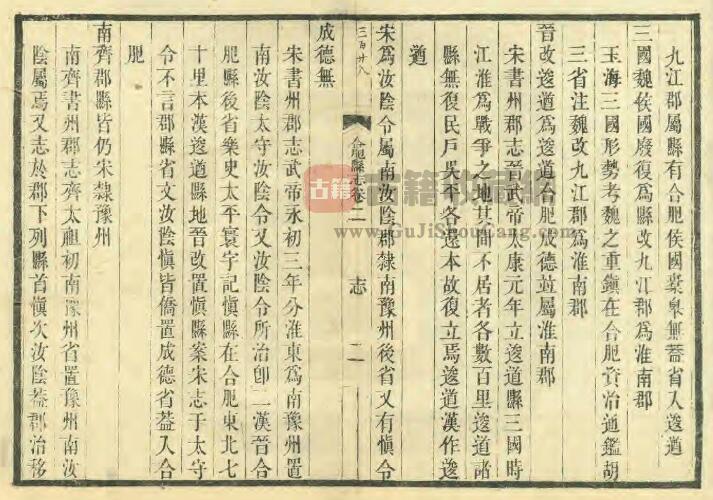 九江郡屬縣有合肥侯國橐皋無葢省入逡遒
三國魏侯國廢復爲縣改九江郡爲淮南郡
玉海三國形勢考魏之重鎭在合肥資治通鑑胡
三省注魏改九江郡爲淮南郡
晉改逡遒爲逡道合肥成德竝屬淮南郡
宋書州郡志晉武帝太康元年立逡道縣三國時
江淮爲戰爭之地其間不居者各數百里逡道諸
縣無復民戶吳平各還本故復立焉逡道漢作逡
遒
宋爲汝陰令屬南汝陰郡隸南豫州後省又有愼令
三百廿八
合肥縣志卷二
志
二
成德無
宋書州郡志武帝永初三年分淮東爲南豫州置
南汝陰太守汝陰令又汝陰令所治卽二漢晉合
肥縣後省樂史太平寰宇記愼縣在合肥東北七
十里本漢逡遒縣地晉改置愼縣案宋志于太守
令不言郡縣省文汝陰愼皆僑置成德省葢入合
肥
南齊郡縣皆仍宋隸豫州
南齊書州郡志齊太祖初南豫州省置豫州南汝
陰屬焉又志於郡下列縣首愼次汝陰葢郡治移
古籍
古籍收藏網
www.GuJiShouCang.com